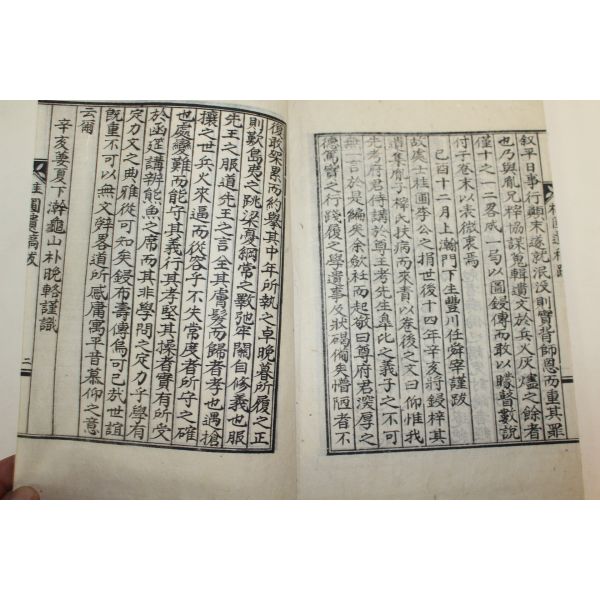 叙平日事行顚末遂就泯没則實背師恩而重其罪
也乃與胤兄梓協謀蒐輯遺文於兵火灰燼之餘者
僅十之一二畧成一局以圖鋟傳而敢以矇瞽數說
付子卷末以表微衷焉
己酉十二月上澣門下生豐川任舜宰謹跋
故處士桂圃李公之捐世後十四年辛亥將鋟梓其
遺集胤子梓氏狀病而來責以卷後之文曰仰惟我
先考府君侍講於尊王考先生皐比之義子之不可
無一言於是編矣余斂衽而起敬曰尊府君深厚之
德篤實之行踐履之學遺事及狀碣備矣憎陋者不
復敢架累而約擧其中年所執之卓晩暮所履之正
則歎島夷之跳梁憂綱常之斁弛牢關自修義也服
先王之服道先王之言全其膚髮而歸者孝也遇槍
攘之世兵火來逼而從容乎不失常度者所守之確
也處變難而能守其義行其孝堅其操者實有所受
於函筵講辨能魚之席而其非學問之定力乎學有
定力文之典雅從可知矣鋟布壽傳烏可已哉世誼
旣重不可以無文辤畧道所感庸寓平昔慕仰之意
云爾
辛亥姜夏下澣龜山朴晩輅謹識
桂圃遺稿跋
二